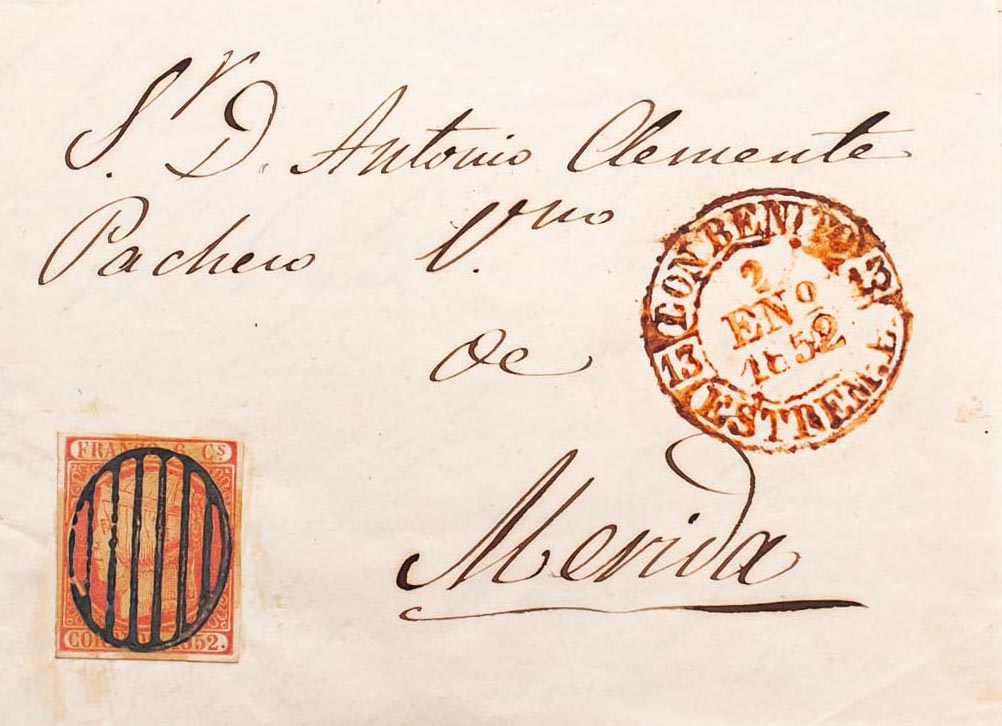 Sr. D. Antonio Clemente
Pacheco V.no
de
Merida
DON BENITO
13 13
2
ENO
1852
ESTREM.A
FRANCO 6 Cs
CORREOS 1852.